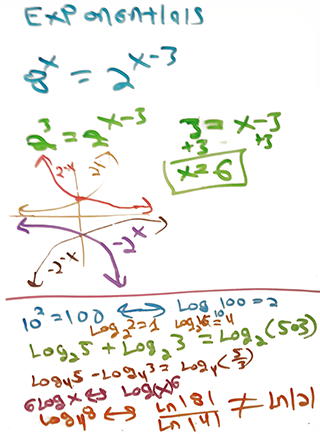 Exponentials
8^x = 2^(x-3)
2^3 = 2^(x-3)
3 = x-3
+3 +3
x=6
2^-x 2^x
-2^x
-2^-x
10^2=100 ↔ Log_10 100=2
Log_2 2=1 Log_2 16=4
Log_2 5 + Log_2 3 = Log_2(5·3)
Log_4 5 - Log_4 3 = Log_4(5/3)
6 Log x ↔ Log(x)^6
log_4 8 ↔ ln|8|/ln|4| ≠ ln|2|